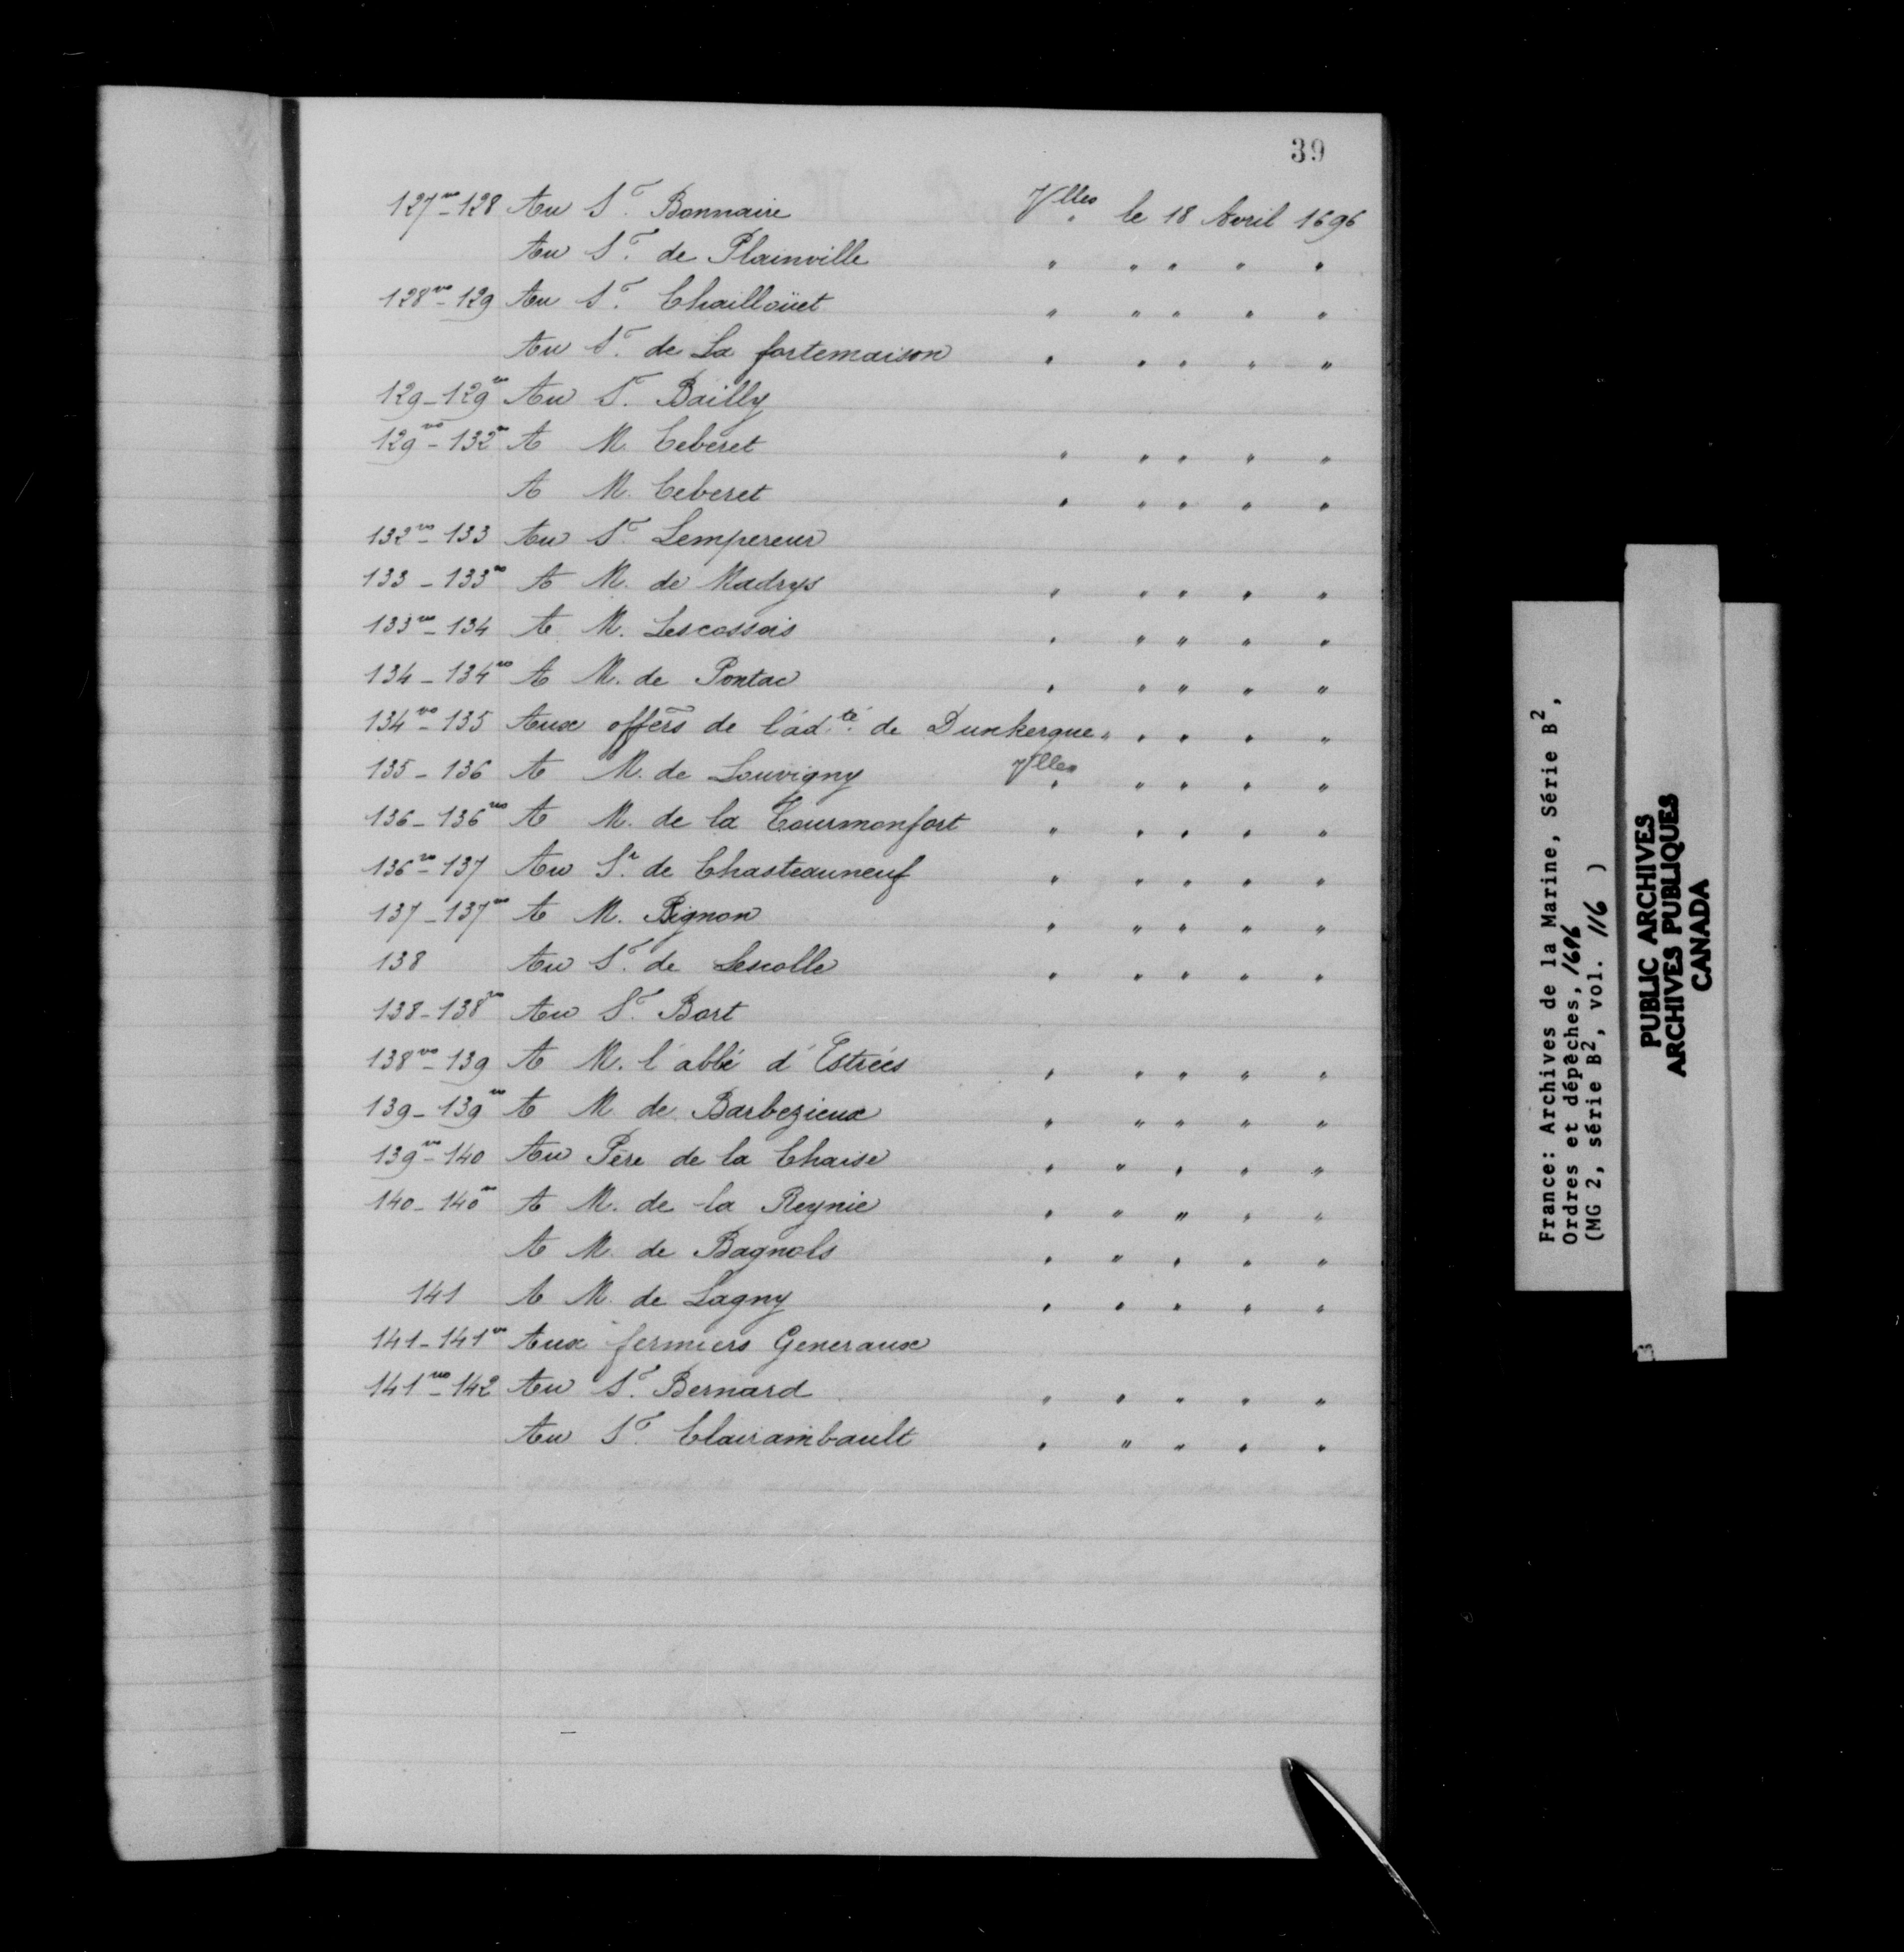 39
127vo-128 Au Sr. Bonnaire Vlles le 18 Avril 1696
Au Sr. de Plainville " " " " "
128vo-129 Au Sr. Chailloüet " " " " "
Au Sr. de La fortemaison " " " " "
129-129vo Au Sr. Bailly
129vo-132vo A M. Ceberet " " " " "
A M. Ceberet " " " " "
132vo-133 Au Sr. Lempereur
133-133vo A M. de Madrys " " " " "
133vo-134 A M. Lescossois " " " " "
134-134vo A M. de Pontac " " " " "
134vo-135 Aux offers de l'adté. de Dunkerque " " " " "
135-136 A M. de Louvigny Vlles " " " "
136-136vo A M. de la Tourmonfort " " " " "
136vo-137 Au Sr. de Chasteauneuf " " " " "
137-137vo A M. Bignon " " " " "
138 Au Sr. de Lescolle " " " " "
138-138vo Au Sr. Bart
138vo-139 A M. l'abbé d'Estrées " " " " "
139-139vo A M. de Barbezieux " " " " "
139vo-140 Au Père de la Chaise " " " " "
140-140vo A M. de la Reynie " " " " "
A M. de Bagnols " " " " "
141 A M. de Lagny " " " " "
141-141vo Aux fermiers Generaux
141vo-142 Au Sr. Bernard " " " " "
Au Sr. Clairambault " " " " "
France: Archives de la Marine, Série B2,
Ordres et dépêches, 1696
(MG 2, série B2, vol. 116 )
PUBLIC ARCHIVES
ARCHIVES PUBLIQUES
CANADA